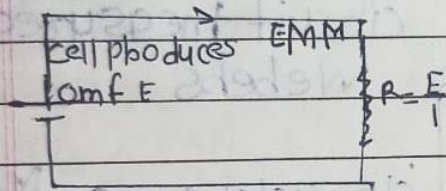 cell pboduces EMM
omf E
R = E/I